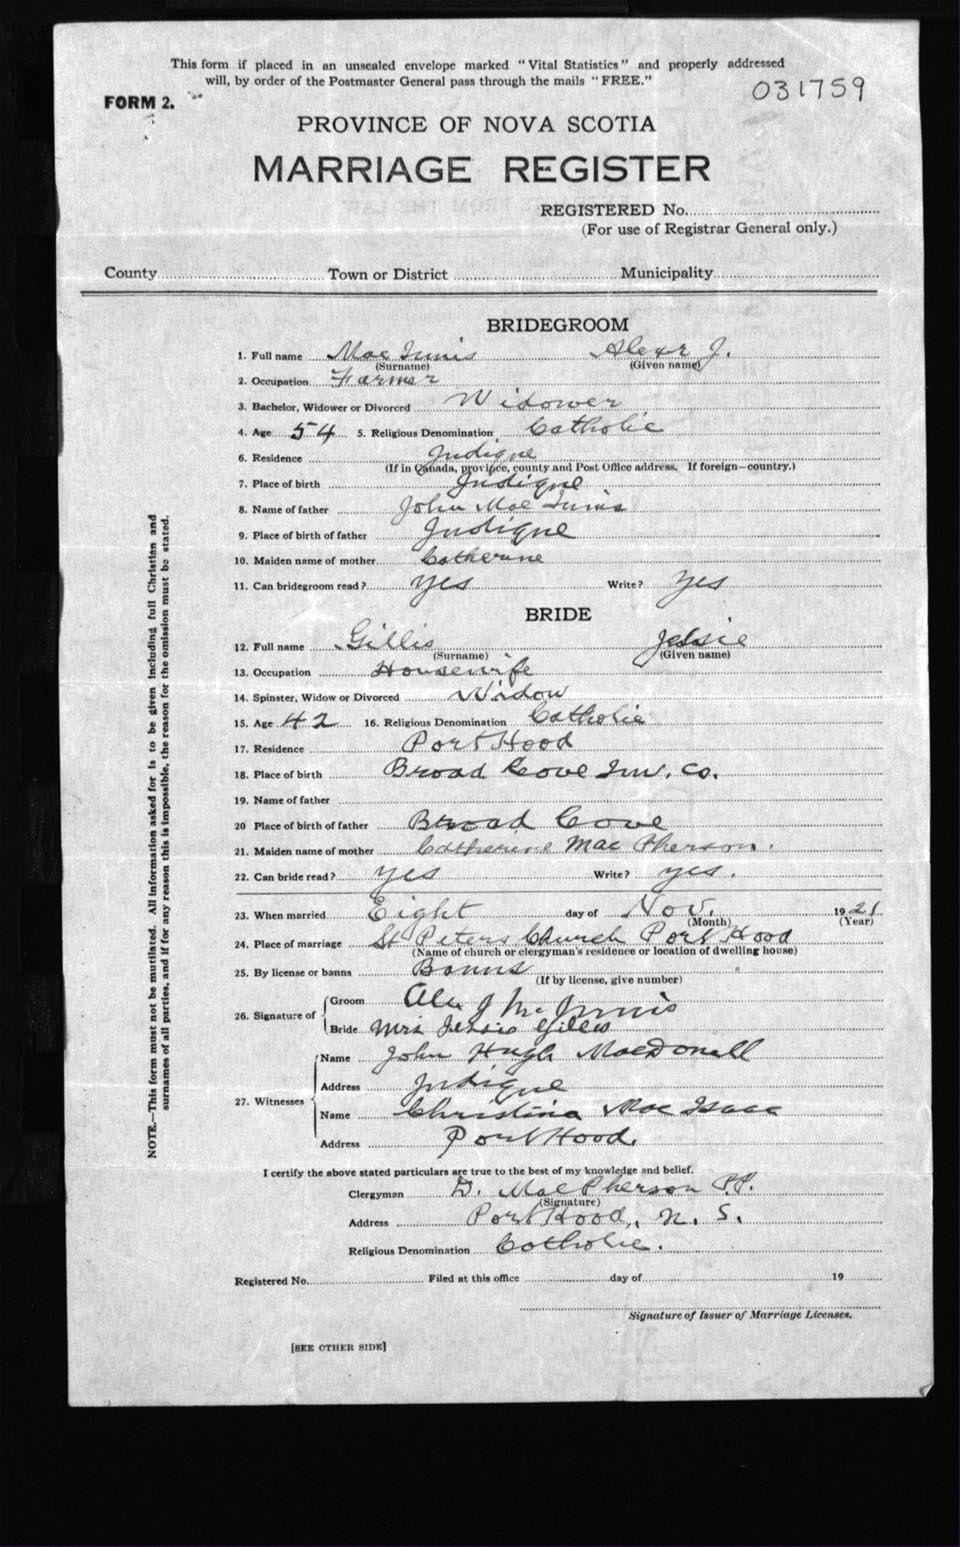 This form if placed in an unsealed envelope marked "Vital Statistics" and properly addressed
will, by order of the Postmaster General pass through the mails "FREE."
031759
FORM 2.
PROVINCE OF NOVA SCOTIA
MARRIAGE REGISTER
REGISTERED No.
(For use of Registrar General only.)
County Town or District Municipality
BRIDEGROOM
1. Full name Mac Innis Alexr J.
(Surname) (Given name)
2. Occupation Farmer
3. Bachelor, Widower or Divorced Widower
4. Age 54 5. Religious Denomination Catholic
6. Residence Judique
(If in Canada, province, county and Post Office address. If foreign—country.)
7. Place of birth Judique
8. Name of father John Mac Innis
9. Place of birth of father Judique
10. Maiden name of mother Catherine
11. Can bridegroom read? yes Write? yes
BRIDE
12. Full name Gillis Jessie
(Surname) (Given name)
13. Occupation Housewife
14. Spinster, Widow or Divorced Widow
15. Age 42 16. Religious Denomination Catholic
17. Residence Port Hood
18. Place of birth Broad Cove Inv. Co.
19. Name of father
20 Place of birth of father Broad Cove
21. Maiden name of mother Catherine Mac Pherson.
22. Can bride read? yes Write? yes.
23. When married Eight day of Nov. 1921
(Month) (Year)
24. Place of marriage St Peters Church Port Hood
(Name of church or clergyman's residence or location of dwelling house)
25. By license or banns Banns
(If by license, give number)
26. Signature of Groom Alex J McInnis
Bride Mrs Jessie Gillis
27. Witnesses Name John Hugh MacDonell
Address Judique
Name Christina Mac Isaac
Address Port Hood.
I certify the above stated particulars are true to the best of my knowledge and belief.
Clergyman D. MacPherson P.P.
(Signature)
Address Port Hood, N. S.
Religious Denomination Catholic.
Registered No. Filed at this office day of 19
Signature of Issuer of Marriage Licenses.
[SEE OTHER SIDE]
NOTE.—This form must not be mutilated. All information asked for is to be given including full Christian and
surnames of all parties, and if for any reason this is impossible, the reason for the omission must be stated.